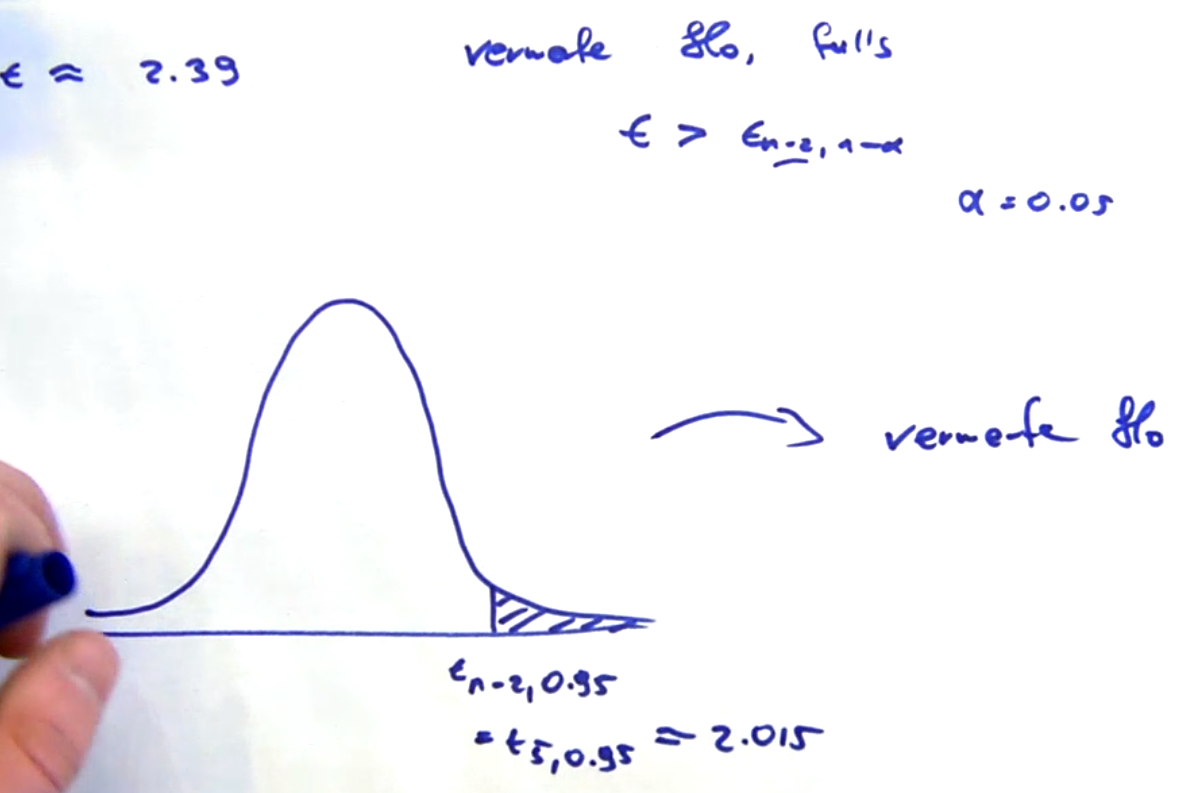 t ≈ 2.39
verwerfe H₀, falls
t > tₙ₋₂, ₁₋α
α = 0.05
verwerfe H₀
tₙ₋₂, 0.95
= t₅, 0.95 ≈ 2.015